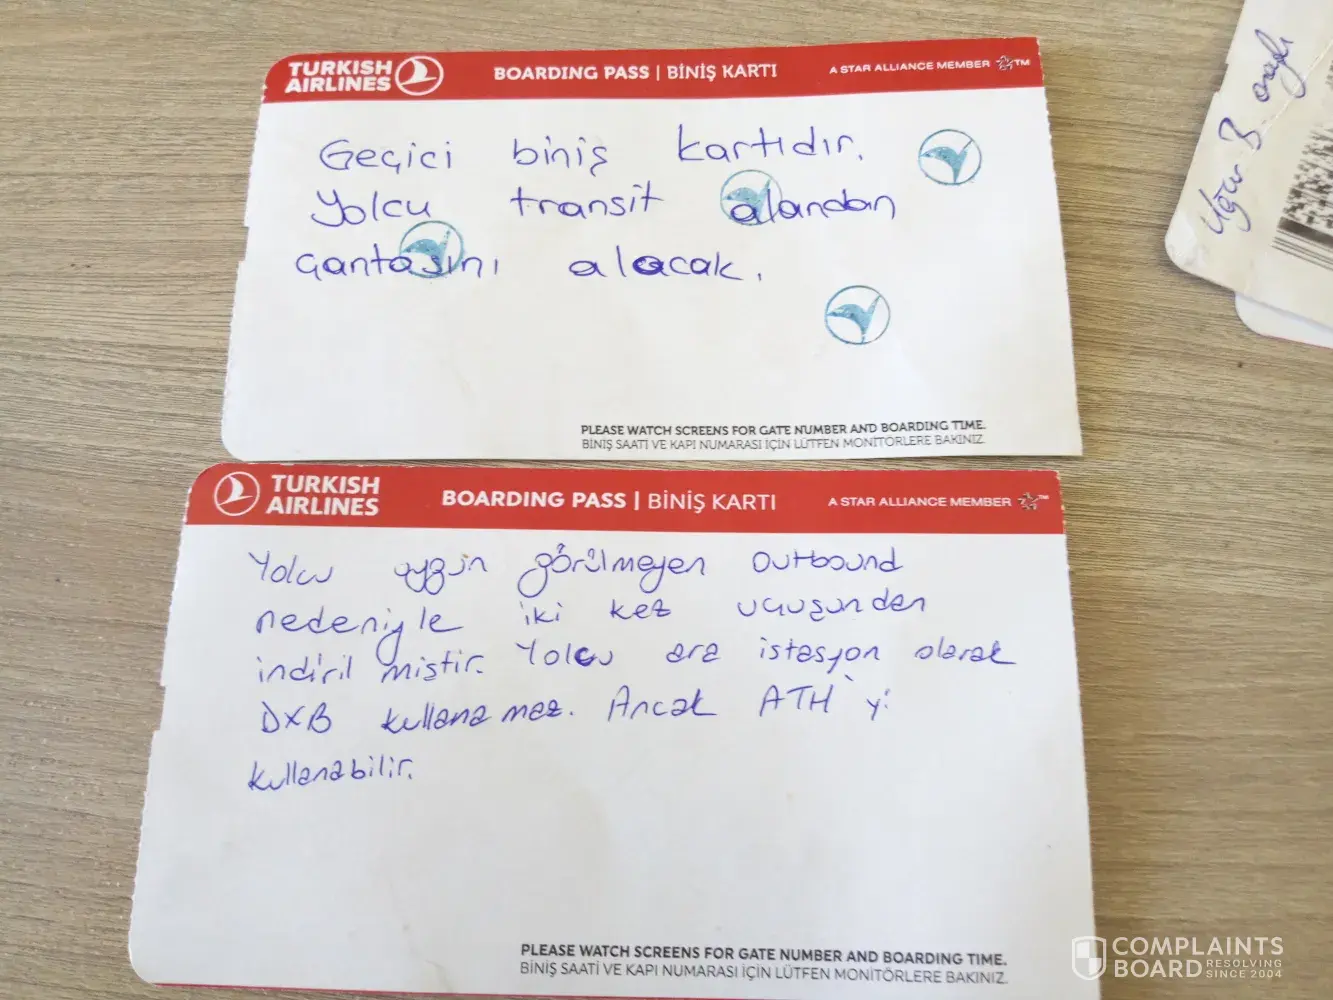 TURKISH AIRLINES
BOARDING PASS | BİNİŞ KARTI
A STAR ALLIANCE MEMBER ™
Geçici biniş kartıdır.
Yolcu transit alandan
çantasını alacak.
PLEASE WATCH SCREENS FOR GATE NUMBER AND BOARDING TIME.
BİNİŞ SAATİ VE KAPI NUMARASI İÇİN LÜTFEN MONİTÖRLERE BAKINIZ.
TURKISH AIRLINES
BOARDING PASS | BİNİŞ KARTI
A STAR ALLIANCE MEMBER ™
Yolcu uygun görülmeyen outbound
nedeniyle iki kez uçuşundan
indirilmiştir. Yolcu ara istasyon olarak
DXB kullanamaz. Ancak ATH'yi
kullanabilir.
PLEASE WATCH SCREENS FOR GATE NUMBER AND BOARDING TIME.
BİNİŞ SAATİ VE KAPI NUMARASI İÇİN LÜTFEN MONİTÖRLERE BAKINIZ.
Uğur B onaylı
COMPLAINTS
BOARD RESOLVING SINCE 2004